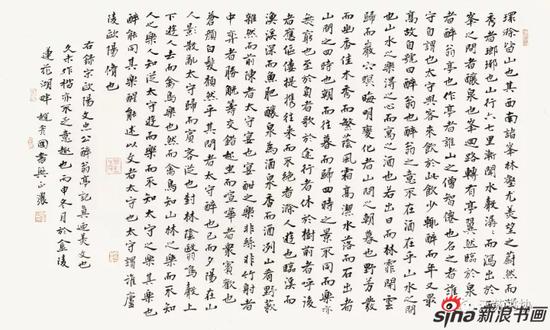 環滁皆山也其西南諸峯林壑尤美望之蔚然而深
秀者瑯琊也山行六七里漸聞水聲潺潺而瀉出於兩
峯之間者釀泉也峯回路轉有亭翼然臨於泉上者
醉翁亭也作亭者誰山之僧智僊也名之者誰太
守自謂也太守與客來飲於此飲少輒醉而年又最
高故自號曰醉翁也醉翁之意不在酒在乎山水之間
也山水之樂得之心而寓之酒也若夫日出而林霏開雲
歸而巖穴暝晦明變化者山間之朝暮也野芳發
而幽香佳木秀而繁陰風霜高潔水落而石出者
山間之四時也朝而往暮而歸四時之景不同而樂亦
無窮也至於負者歌於途行者休於樹前者呼後
者應傴僂提攜往來而不絕者滁人遊也臨溪而
漁溪深而魚肥釀泉為酒泉香而酒洌山肴野蔌
雜然而前陳者太守宴也宴酣之樂非絲非竹射者
中弈者勝觥籌交錯起坐而諠譁者衆賓歡也
蒼顏白髮頹然乎其間者太守醉也已而夕陽在山
人影散亂太守歸而賓客從也樹林陰翳鳴聲上
下遊人去而禽鳥樂也然而禽鳥知山林之樂而不知
人之樂人知從太守遊而樂而不知太守之樂其樂也
醉能同其樂醒能述以文者太守也太守謂誰廬
陵歐陽脩也
右錄宋歐陽文忠公醉翁亭記真廼美文也
久未作楷亦不之意趣也丙申冬月於金陵
蓮花湖畔趙貴國書
sina新浪书画